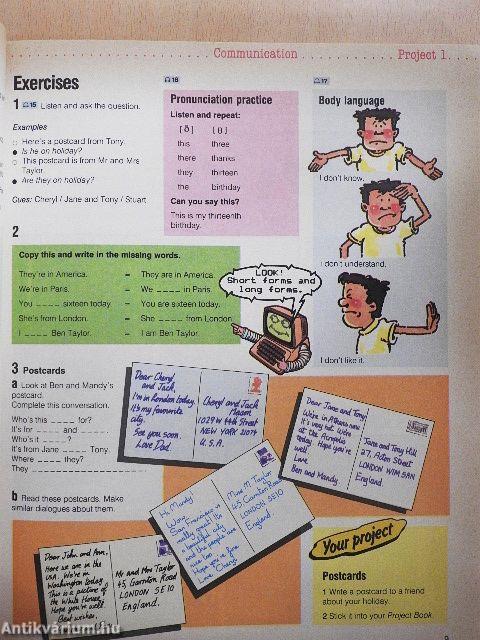 Communication Project 1
Exercises
1 15 Listen and ask the question.
Examples
Here's a postcard from Tony.
Is he on holiday?
This postcard is from Mr and Mrs
Taylor.
Are they on holiday?
Cues: Cheryl / Jane and Tony / Stuart
16
Pronunciation practice
Listen and repeat:
[ð] [θ]
this three
there thanks
they thirteen
the birthday
Can you say this?
This is my thirteenth
birthday.
17
Body language
I don't know.
I don't understand.
I don't like it.
2
Copy this and write in the missing words.
They're in America. – They are in America.
We're in Paris. – We ____ in Paris.
You ____ sixteen today. – You are sixteen today.
She's from London. – She ____ from London.
I ____ Ben Taylor. – I am Ben Taylor.
LOOK!
Short forms and
long forms.
3 Postcards
a Look at Ben and Mandy's
postcard.
Complete this conversation.
Who's this ____ for?
It's for ____ and ____.
Who's it ____?
It's from Jane ____ Tony.
Where ____ they?
They ____
b Read these postcards. Make
similar dialogues about them.
Dear Cheryl
and Jack,
I'm in London today.
It's my favourite
city.
See you soon.
Love Dad.
Cheryl and Jack
Mason
1029 W 44th Street
NEW YORK 11074
U.S.A.
Dear Jane and Tony
We're in Athens now.
It's very hot. We're
at the Acropolis
today. Hope you're
well
Love
Ben and Mandy
Jane and Tony Hill
27, Acton Street
LONDON W1M 5AN
England
Hi Mandy!
Wow!
San Francisco is
really great! It's
a beautiful city
and the people are
nice too.
Hope you're fine
Love Cheryl
Miss M Taylor
45 Garnton Road
LONDON SE10
England
Dear John and Ann,
Here we are in the
USA. We're in
Washington today.
This is a picture of
the White House.
Hope you're well.
Best wishes,
Mr and Mrs Taylor
45, Garnton Road
LONDON SE10
England.
Your project
Postcards
1 Write a postcard to a friend
about your holiday.
2 Stick it into your Project Book.
9
Antikvárium.hu